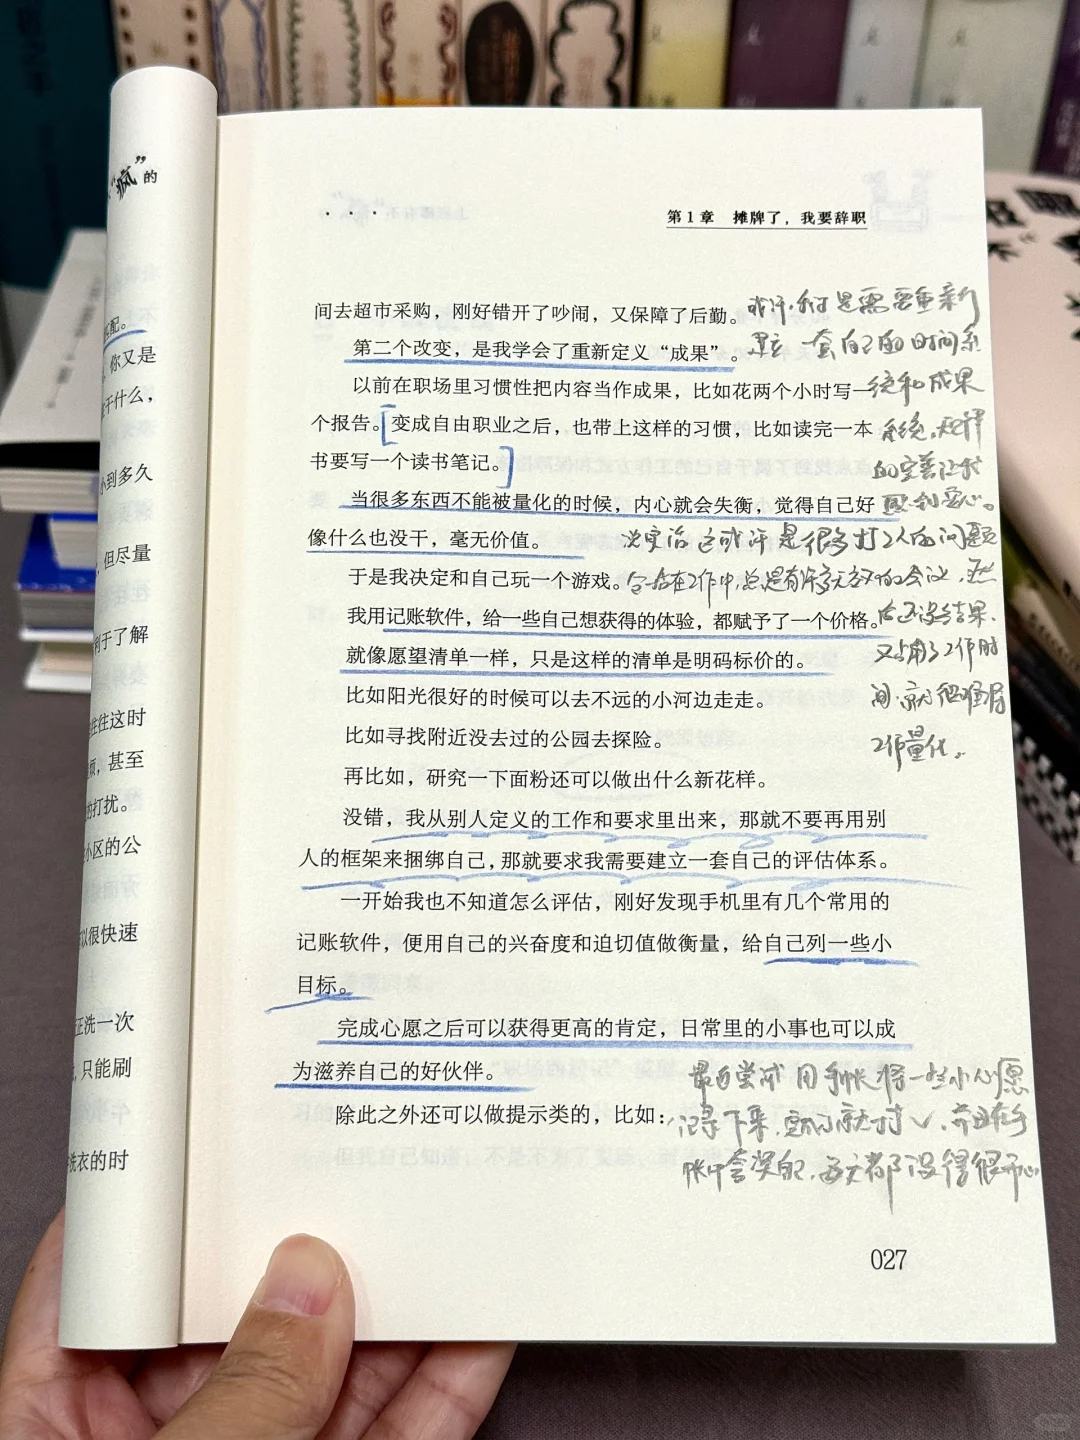 “疯”的
第1章 摊牌了，我要辞职
配。
你又是
干什么，
小到多久
但尽量
利于了解
往往这时
烦，甚至
的打扰。
小区的公
以很快速
正洗一次
只能刷
洗衣的时
间去超市采购，刚好错开了吵闹，又保障了后勤。
第二个改变，是我学会了重新定义“成果”。
以前在职场里习惯性把内容当作成果，比如花两个小时写一
个报告。变成自由职业之后，也带上这样的习惯，比如读完一本
书要写一个读书笔记。
当很多东西不能被量化的时候，内心就会失衡，觉得自己好
像什么也没干，毫无价值。
于是我决定和自己玩一个游戏。
我用记账软件，给一些自己想获得的体验，都赋予了一个价格。
就像愿望清单一样，只是这样的清单是明码标价的。
比如阳光很好的时候可以去不远的小河边走走。
比如寻找附近没去过的公园去探险。
再比如，研究一下面粉还可以做出什么新花样。
没错，我从别人定义的工作和要求里出来，那就不要再用别
人的框架来捆绑自己，那就要求我需要建立一套自己的评估体系。
一开始我也不知道怎么评估，刚好发现手机里有几个常用的
记账软件，便用自己的兴奋度和迫切值做衡量，给自己列一些小
目标。
完成心愿之后可以获得更高的肯定，日常里的小事也可以成
为滋养自己的好伙伴。
除此之外还可以做提示类的，比如：
或许，我们是需要重新
建立一套自己的时间系
统和成果
系统，
的定义让
其实这或许是很多打工人的问题
在工作中，总是有许多无效的会议，
后还没结果，
又占用了工作时
间，就很难用
工作量化。
最自尝试用手帐将一些小心愿
记录下来，就打√，并且在手
帐中，每天都过得很开心
027